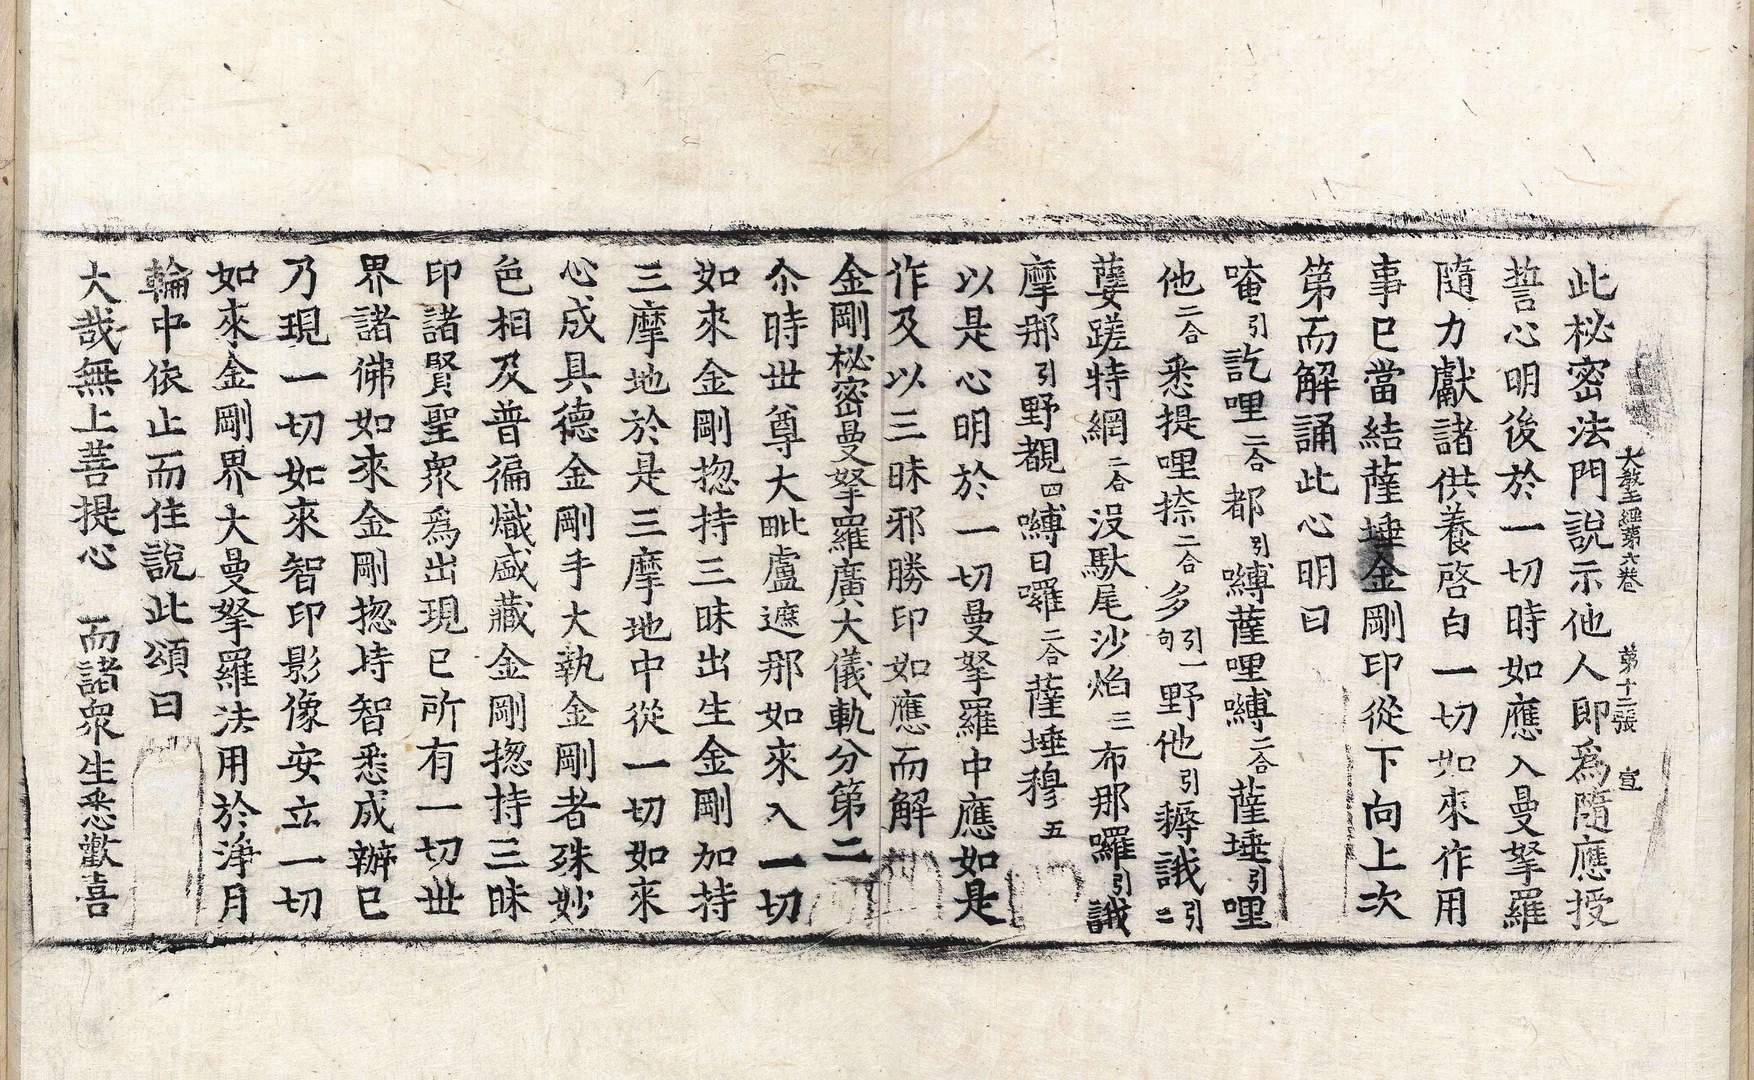 大教王經第六卷　第十二張　宣
此秘密法門說示他人即爲隨應授
誓心明後於一切時如應入曼拏羅
隨力獻諸供養啓白一切如來作用
事已當結薩埵金剛印從下向上次
第而解誦此心明曰
唵引訖哩二合都引嚩薩哩嚩二合薩埵引哩
他二合悉提哩捺二合多引一句野他引耨誐引二
蘖蹉特網二合沒馱尾沙焰三布那囉引誐
摩那引野覩四嚩日囉二合薩埵穆五
以是心明於一切曼拏羅中應如是
作及以三昧邪勝印如應而解
金剛秘密曼拏羅廣大儀軌分第二
尒時世尊大毗盧遮那如來入一切
如來金剛揔持三昧出生金剛加持
三摩地於是三摩地中從一切如來
心成具德金剛手大執金剛者殊妙
色相及普徧熾盛藏金剛揔持三昧
印諸賢聖衆爲出現已所有一切世
界諸佛如來金剛揔持智悉成辦已
乃現一切如來智印影像安立一切
如來金剛界大曼拏羅法用於淨月
輪中依止而住說此頌曰
大哉無上菩提心　而諸衆生悉歡喜